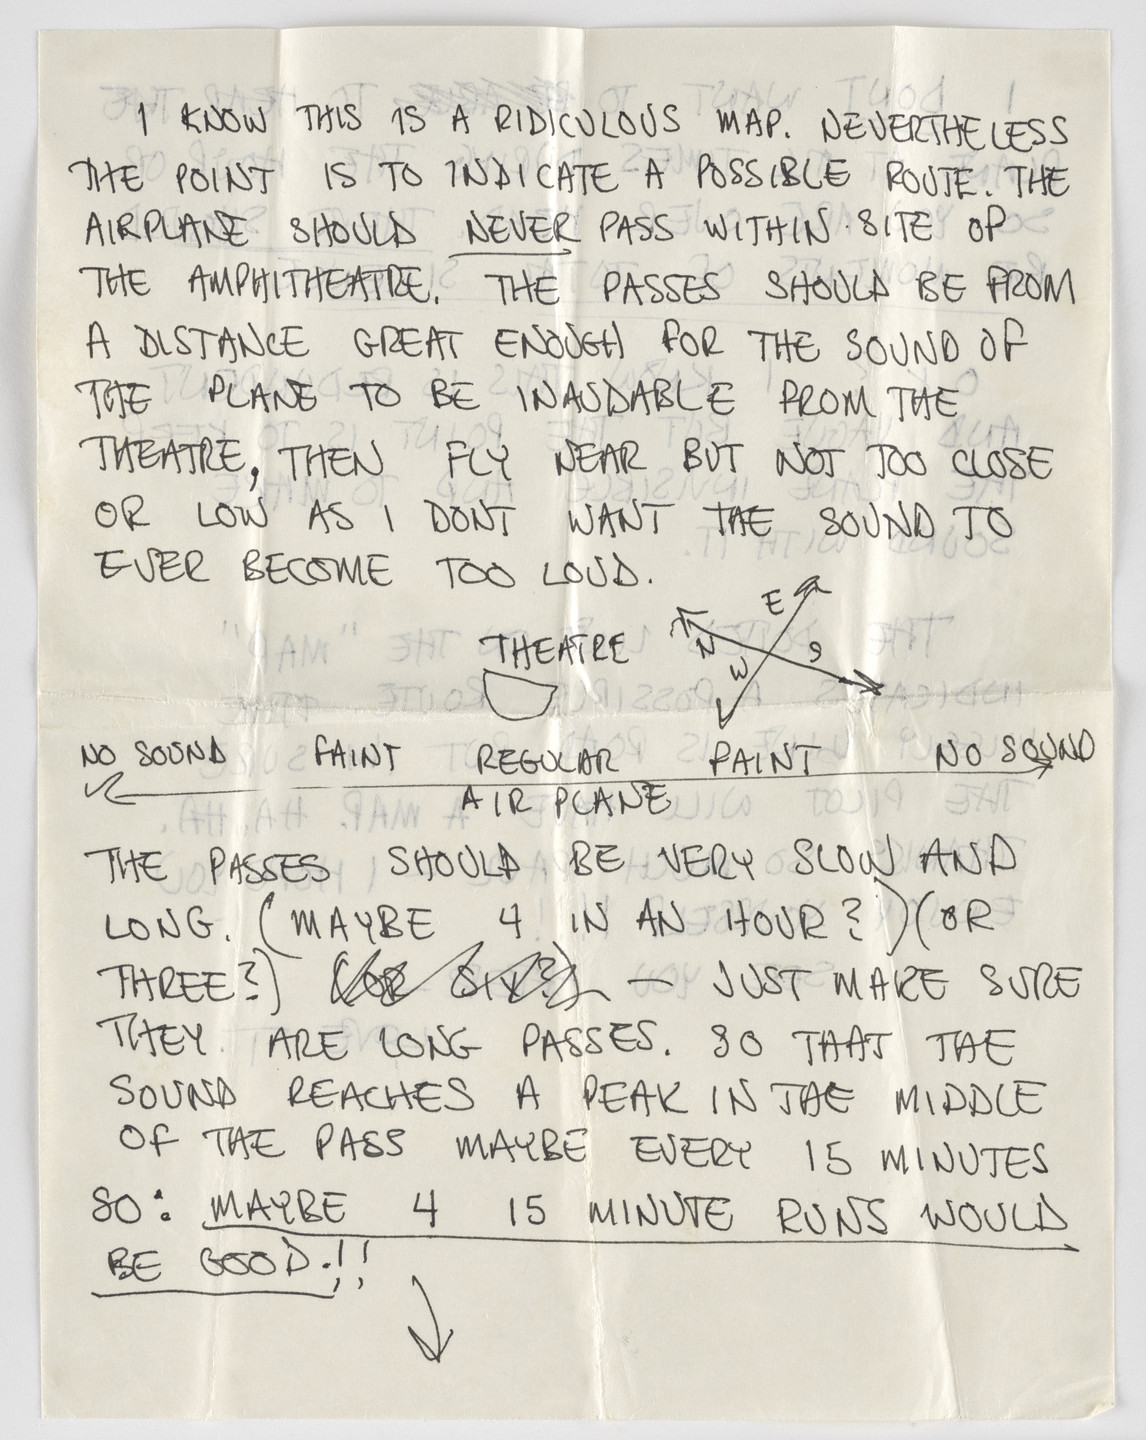 I KNOW THIS IS A RIDICULOUS MAP. NEVERTHELESS
THE POINT IS TO INDICATE A POSSIBLE ROUTE. THE
AIRPLANE SHOULD NEVER PASS WITHIN SITE OF
THE AMPHITHEATRE. THE PASSES SHOULD BE FROM
A DISTANCE GREAT ENOUGH FOR THE SOUND OF
THE PLANE TO BE INAUDABLE FROM THE
THEATRE, THEN FLY NEAR BUT NOT TOO CLOSE
OR LOW AS I DONT WANT THE SOUND TO
EVER BECOME TOO LOUD.
E
THEATRE N S
W
NO SOUND FAINT REGULAR FAINT NO SOUND
AIRPLANE
THE PASSES SHOULD BE VERY SLOW AND
LONG. (MAYBE 4 IN AN HOUR?) (OR
THREE?) (OR SIX?) — JUST MAKE SURE
THEY ARE LONG PASSES. SO THAT THE
SOUND REACHES A PEAK IN THE MIDDLE
OF THE PASS MAYBE EVERY 15 MINUTES
SO: MAYBE 4 15 MINUTE RUNS WOULD
BE GOOD.!!